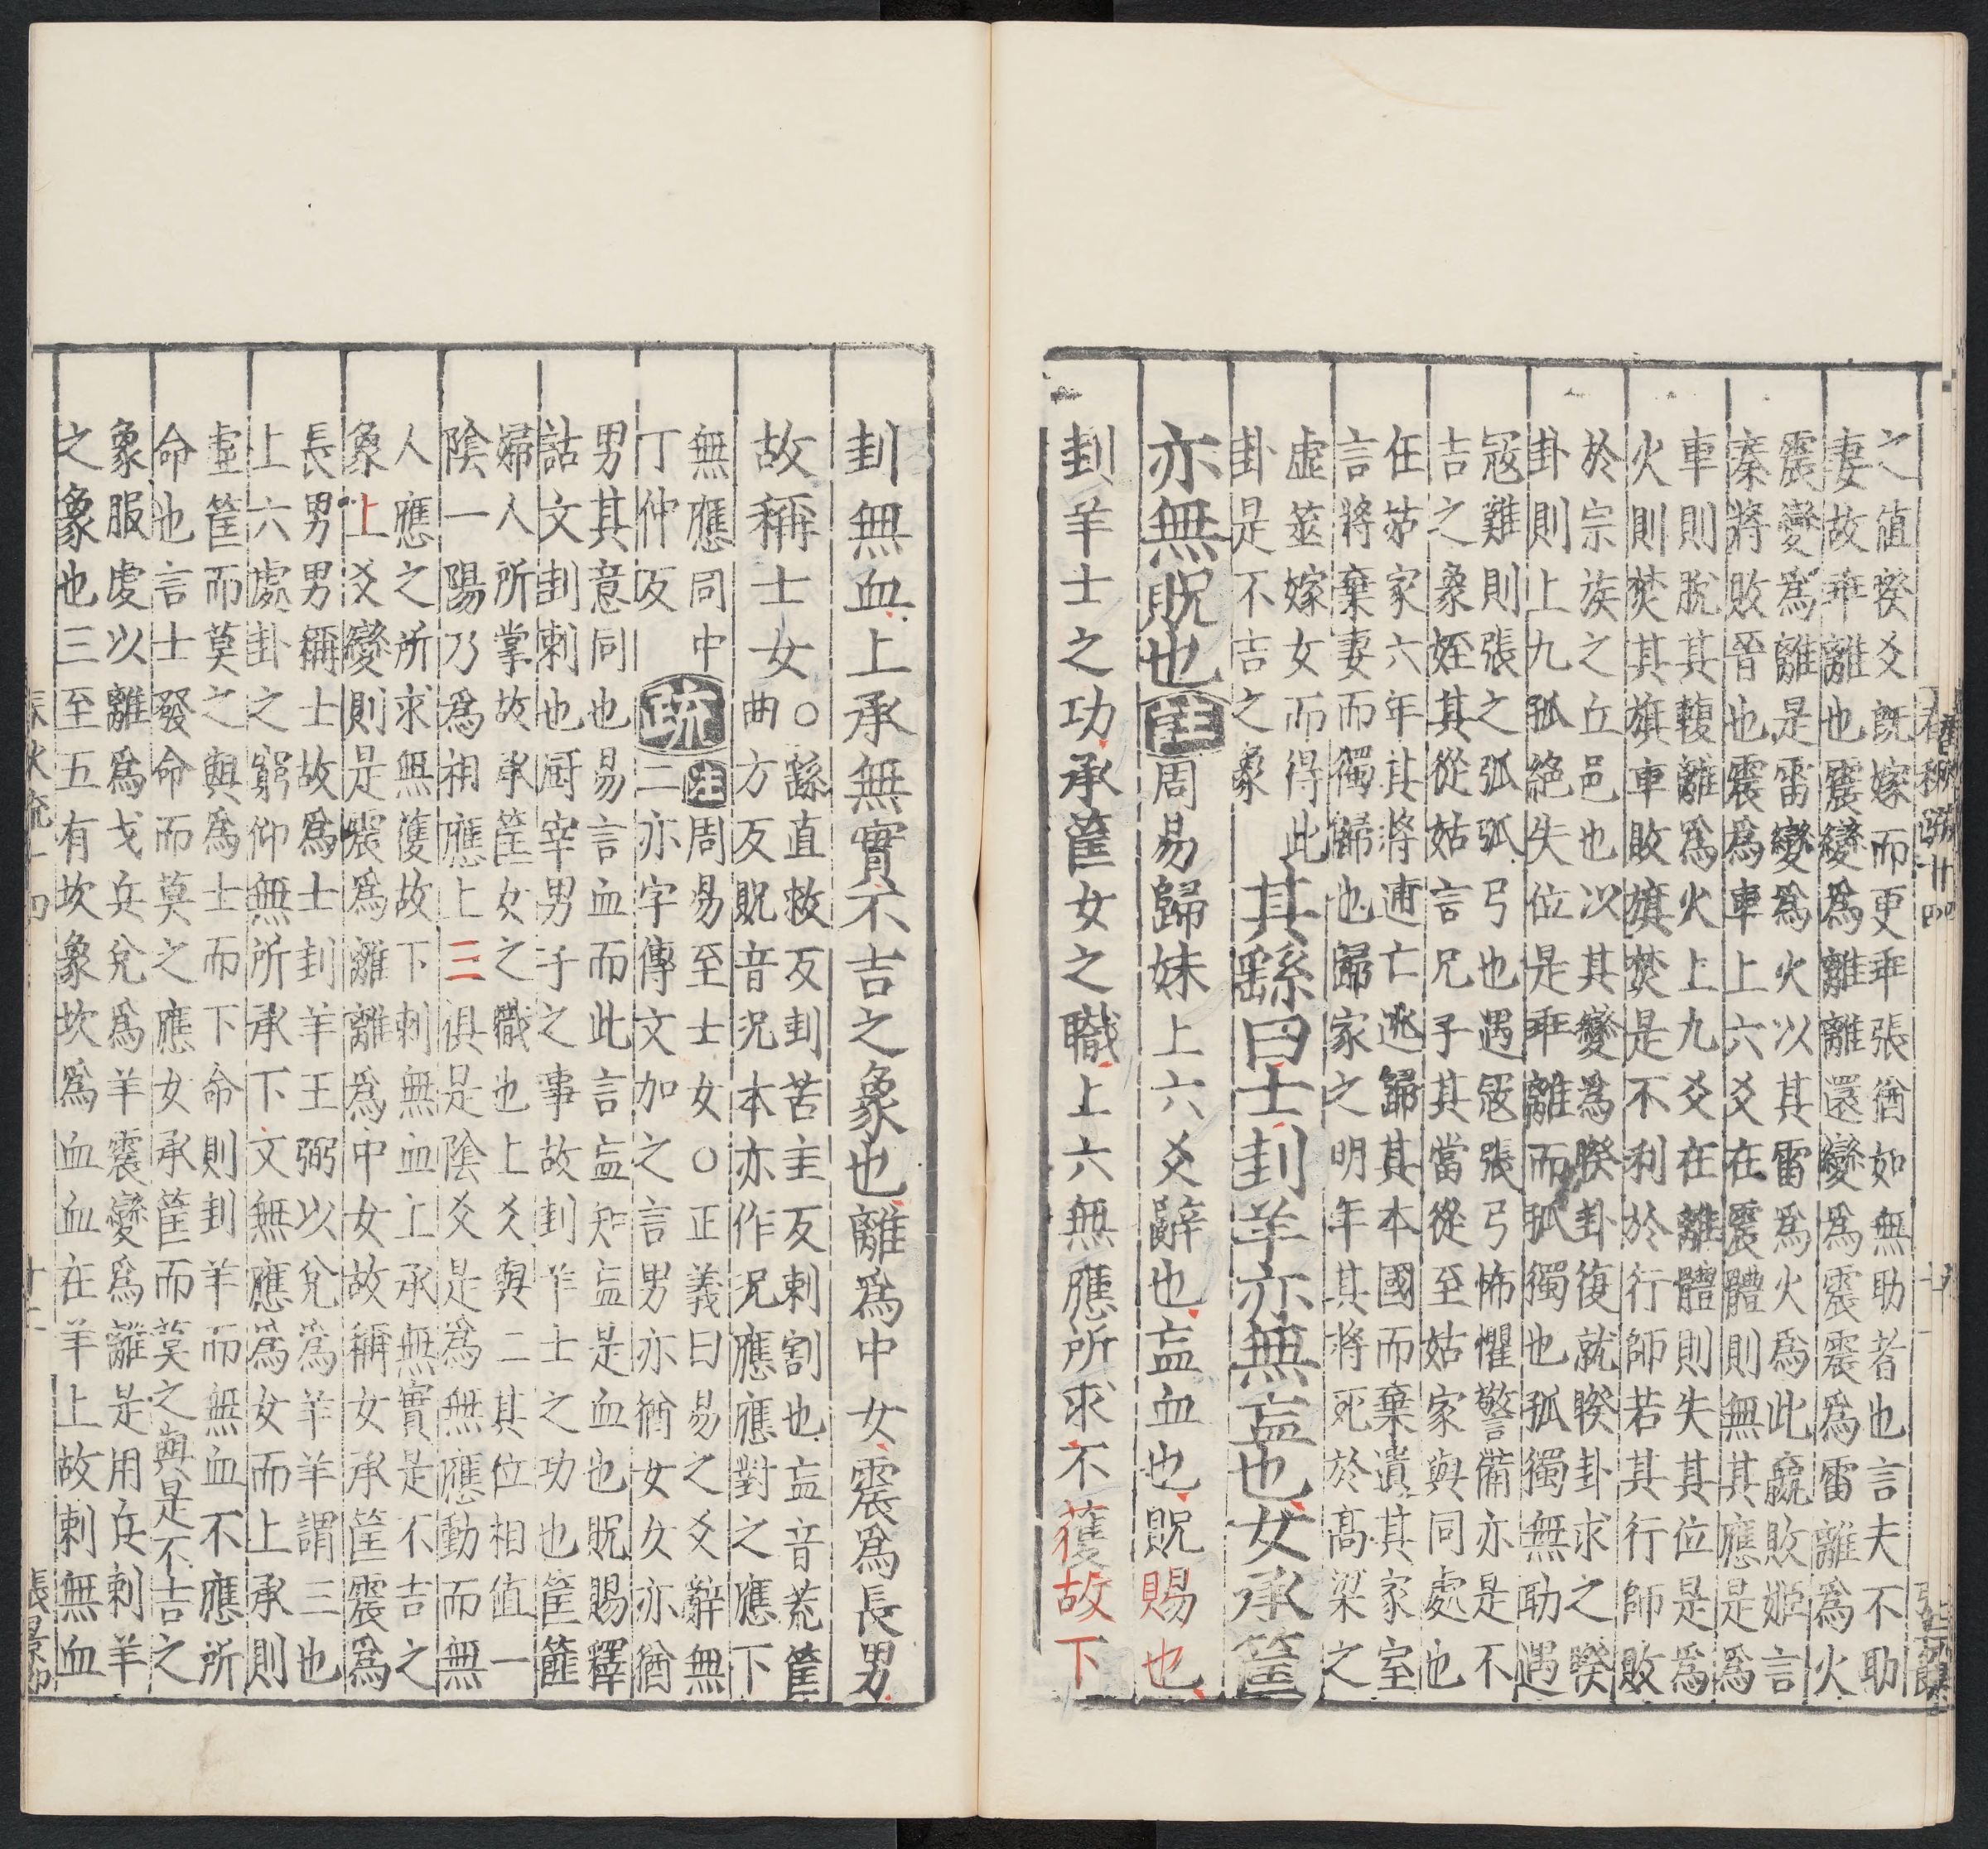 之值睽爻旣嫁而更乖張猶如無助者也言夫不助
妻故乖離也震變爲離離還變爲震震爲雷離爲火
震變爲離是雷變爲火以其雷爲火爲此嬴敗姬言
秦將敗晉也震爲車上六爻在震體則無其應是爲
車則脫其輹離爲火上九爻在離體則失其位是爲
火則焚其旗車敗旗焚是不利於行師若其行師敗
於宗族之丘邑也次其變爲睽卦復就睽卦求之睽
卦則上九孤絶失位是乖離而孤獨也孤獨無助遇
冦難則張之弧弧弓也遇冦張弓怖懼警備亦是不
吉之象姪其從姑言兄子其當從至姑家與同處也
在姑家六年其將逋亡逃歸其本國而棄遺其家室
言將棄妻而獨歸也歸家之明年其將死於高梁之
虛筮嫁女而得此
卦是不吉之象
其繇曰士刲羊亦無衁也女承筐
亦無貺也
注
周易歸妹上六爻辭也衁血也貺賜也
刲羊士之功承筐女之職上六無應所求不獲故下
刲無血上承無實不吉之象也離爲中女震爲長男
故稱士女
○繇直救反刲苦圭反刺割也衁音荒筐
曲方反貺音況本亦作況應應對之應下
無應同中
丁仲反
疏
注周易至士女○正義曰易之爻辭無
二亦字傳文加之言男亦猶女女亦猶
男其意同也易言血而此言衁知衁是血也貺賜釋
詁文刲刺也厨宰男子之事故刲羊士之功也筐篚
婦人所掌故承筐女之職也上爻與二其位相值一
陰一陽乃爲相應上三俱是陰爻是爲無應動而無
人應之所求無獲故下刺無血上承無實是不吉之
象上爻變則是震爲離離爲中女故稱女承筐震爲
長男男稱士故爲士刲羊王弼以兌爲羊羊謂三也
上六處卦之窮仰無所承下文無應爲女而上承則
虛筐而莫之與爲士而下命則刲羊而無血不應所
命也言士發命而莫之應女承筐而莫之與是不吉之
象服虔以離爲戈兵兌爲羊震變爲離是用兵刺羊
之象也三至五有坎象坎爲血血在羊上故刺無血